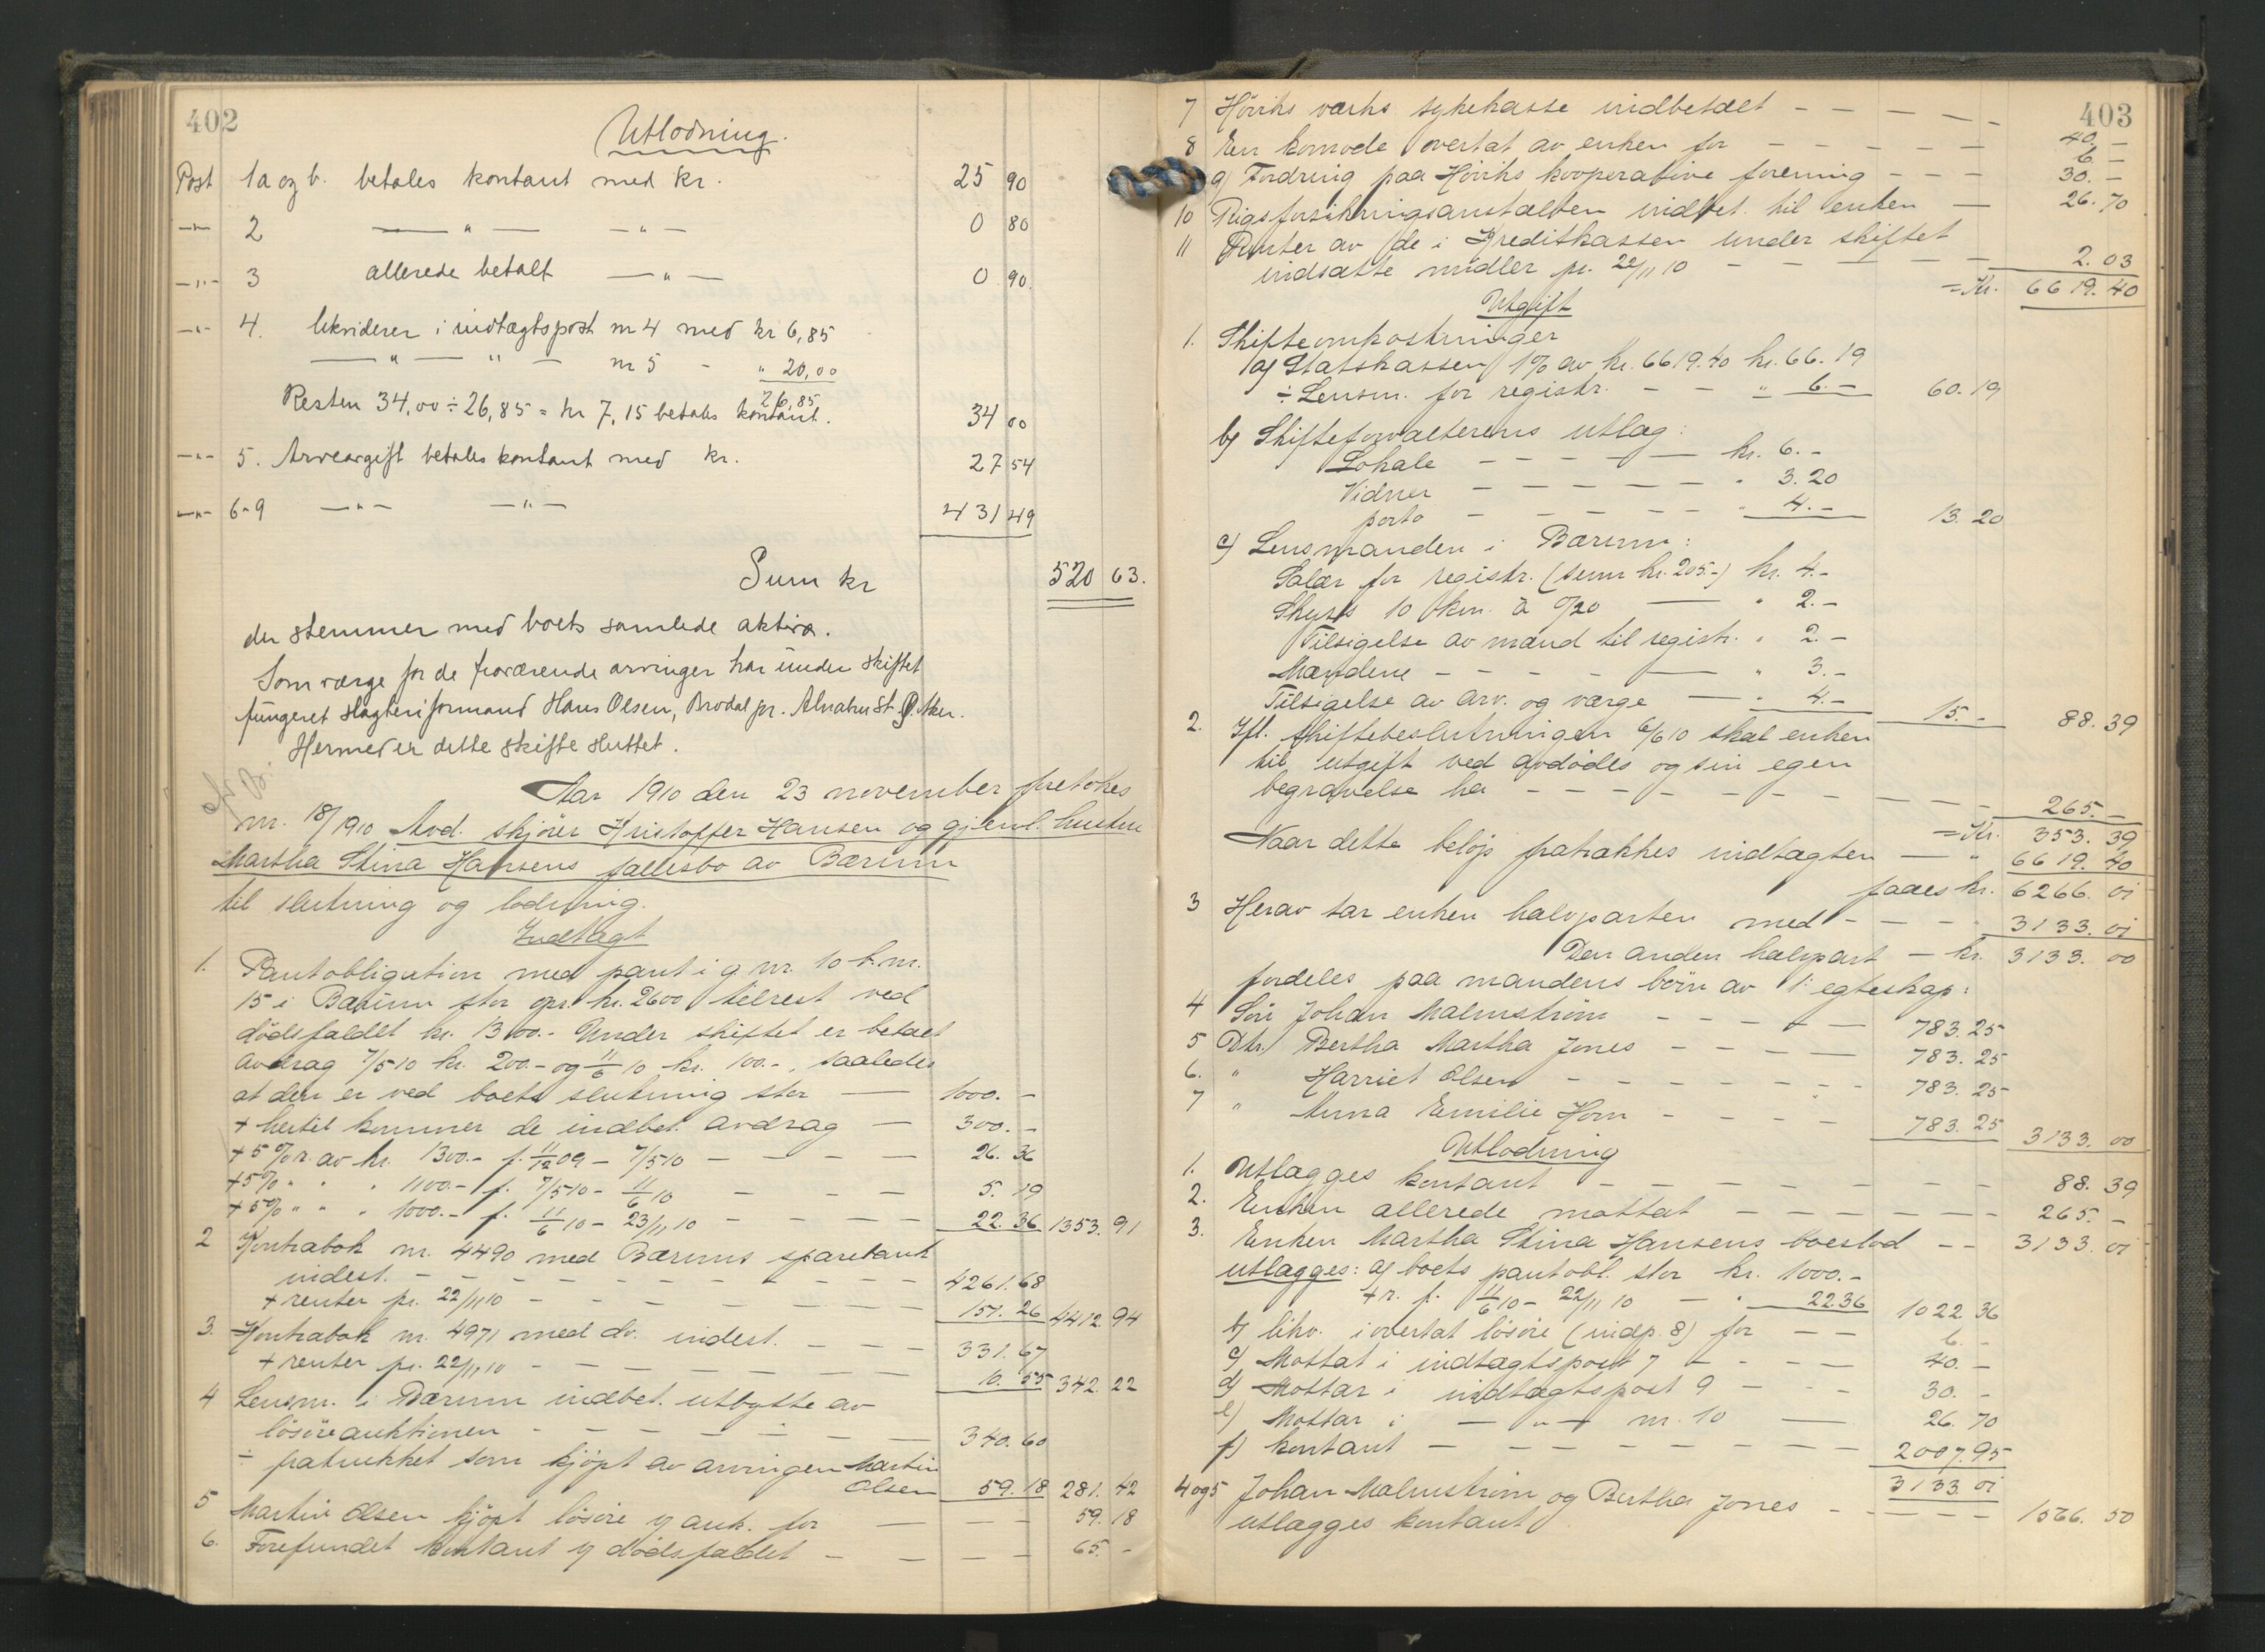 402
Utlodning.
Post 1a og b. betales kontant med kr. 25 90
—"— 2 —"— —"— 0 80
—"— 3 allerede betalt —"— 0 90.
—"— 4. likviderer i indtægtspost nr 4 med kr 6,85
—"— "— nr 5 - " 20,00
26,85
Resten 34,00 ÷ 26,85 = kr 7,15 betales kontant. 34 00
—"— 5. Arveavgift betales kontant med kr. 27 54
—"— 6-9 —"— —"— 431 49
Sum kr 520 63.
der stemmer med boets samlede aktiva.
Som værge for de fraværende arvinger har under skiftet
fungeret slagteriformand Hans Olsen, Brodal pr. Alnabru St. Ø. Aker.
Hermed er dette skifte sluttet.
Aar 1910 den 23 november foretokes
nr. 18/1910 Avd. skjører Kristoffer Hansen og gjenl. hustru
Martha Stina Hansens fællesbo av Bærum
til slutning og lodning.
Indtægt
1. Pantobligation med pant i g.nr. 10 b.nr.
15 i Bærum stor opr. kr. 2600 tilrest ved
dødsfaldet kr. 1300.- Under skiftet er betalt
avdrag 7/5 10 kr. 200.- og 11/6 10 kr. 100.-, saaledes
at den er ved boets slutning stor — 1000. -
+ hertil kommer de indbet. avdrag — 300. -
+ 5% r. av kr. 1300.- f. 11/12 09 - 7/5 10 - - - - 26. 36
+ 5% " " " 1100.- f. 7/5 10 - 11/6 10 - - - 5. 19
+ 5% " " " 1000.- f. 11/6 10 - 23/11 10 - - - - 22. 36 1353. 91
2 Kontrabok nr. 4490 med Bærums sparebank
indest. - - - - - - - - 4261. 68
+ renter pr. 22/11 10 - - - - - - 151. 26 4412. 94
3. Kontrabok nr. 4971 med do. indest. - - - 331. 67
+ renter pr. 22/11 10 - - - - - - 10. 55 342. 22
4 Lensm. i Bærum indbet. utbytte av
løsøreauktionen - - - - - - - 340. 60
÷ fratrukket som kjøpt av arvingen Martin
Olsen 59. 18 281. 42
5 Martin Olsen kjøpt løsøre v/ auk. for — - - - 59. 18
6. Forefundet kontant v/ dødsfaldet - - - - 65. -
403
7 Høviks verks sykekasse indbetalt - - - - - 40. -
8 En komode overtat av enken for - - - - - 6. -
9) Fordring paa Høviks kooperative forening - - - 30. -
10 Rigsforsikringsanstalten indbet. til enken — 26. 70
11 Renter av de i Kreditkassen under skiftet
indsatte midler pr. 22/11 10 - - - - - - 2. 03
= Kr. 6619. 40
Utgift
1. Skifteomkostninger
a) Statskassen 1% av kr. 6619.40 kr. 66. 19
÷ Lensm. for registr. - - " 6. - 60. 19
b) Skifteforvalterens utlæg:
Lokale - - - - - kr. 6. -
Vidner - - - - - " 3. 20
porto - - - - - " 4. - 13. 20
c) Lensmanden i Bærum:
Salær for registr. (sum kr. 205.-) kr. 4.-
Skyss 10 km. à 0/20 — " 2.-
Tilsigelse av mænd til registr. " 2.-
Mændene - - - - — " 3.-
Tilsigelse av arv. og værge — " 4.- 15. - 88. 39
2. Ifl. skiftebeslutningen 6/6 10 skal enken
til utgift ved avdødes og sin egen
begravelse ha - - - - - - - - - - 265. -
= Kr. 353. 39
Naar dette beløp fratrækkes indtægten — " 6619. 40
faaes kr. 6266. 01
3 Herav tar enken halvparten med - - - " 3133. 01
Den anden halvpart - kr. 3133. 00
fordeles paa mandens børn av 1. egteskap:
4 Søn Johan Malmstrøm - - - - — 783. 25
5 Dtr. Bertha Martha Jones - - - - — 783. 25
6. " Harriet Olsen - - - - - - - 783. 25
7 " Anna Emilie Horn - - - - - 783. 25 3133. 00
Utlodning
1. Utlægges kontant - - - - - - - - 88. 39
2. Enken allerede mottat - - - - - - - 265. -
3. Enken Martha Stina Hansens boeslod - - 3133. 01
utlægges: a) boets pantobl. stor kr. 1000.-
+ r. f. 11/6 10 - 22/11 10 - " 22.36 1022 36
b) likv. i overtat løsøre (indp. 8) for - - 6. -
c) Mottat i indtægtspost 7 - - - - 40. -
d) Mottar i indtægtspost 9 - - - 30. -
e) Mottar i — " — nr. 10 — 26. 70
f) kontant - - - - - - - - 2007.95
3133. 01
4 og 5 Johan Malmstrøm og Bertha Jones -
utlægges kontant - - - - 1566. 50